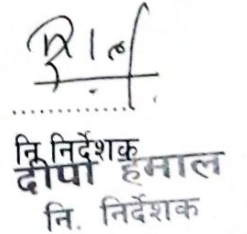 नि निर्देशक
दीपा हमाल
नि. निर्देशक